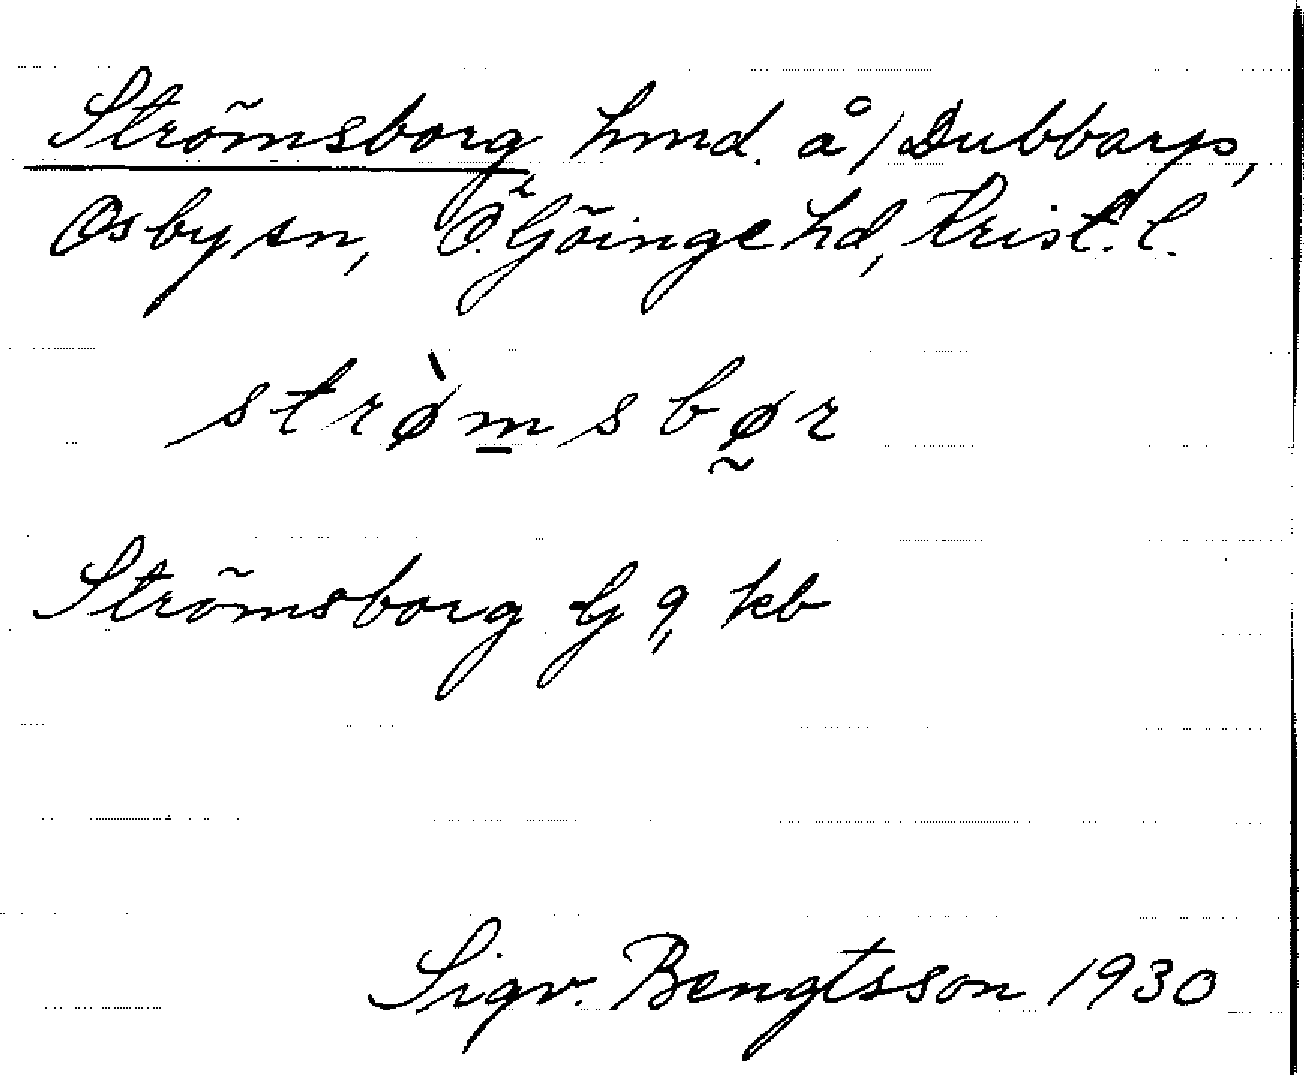 Strömsborg hmd. å 1 Dubbarp,
Osby sn, Ö. Göinge hd, Krist. l.
strø̀m̲sbø̰r
Strömsborg G 9, kb
Sigv. Bengtsson 1930